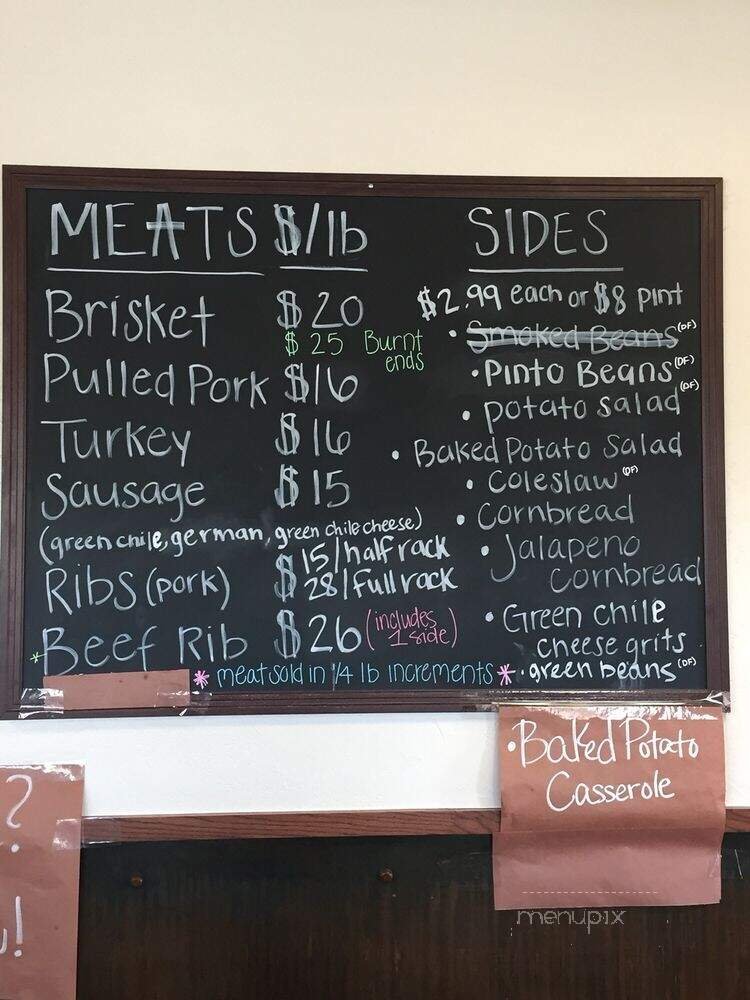 MEATS $/lb
Brisket $20
$25 Burnt
ends
Pulled Pork $16
Turkey $16
Sausage $15
(green chile, german, green chile cheese)
Ribs (pork) $15/half rack
28/full rack
*Beef Rib $26 (includes
1 side)
* meat sold in 1/4 lb increments *
SIDES
$2.99 each or $8 pint
• Smoked Beans (DF)
• Pinto Beans (DF)
• potato salad (DF)
• Baked Potato Salad
• Coleslaw (DF)
• Cornbread
• Jalapeno
cornbread
• Green chile
cheese grits
• green beans (DF)
• Baked Potato
Casserole
?
!
menupix